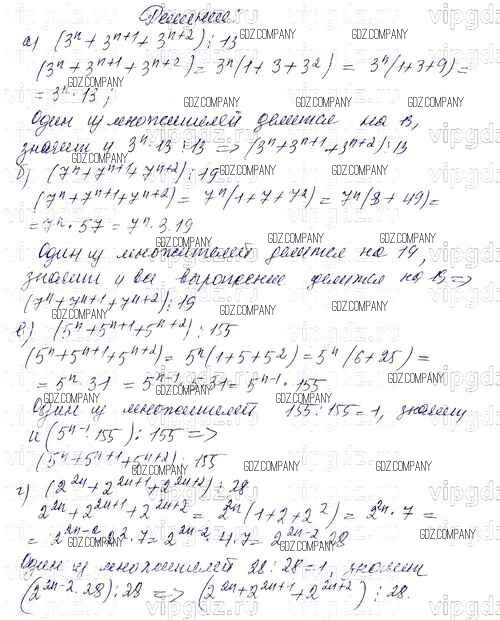 Решение:
а) (3ⁿ + 3ⁿ⁺¹ + 3ⁿ⁺²) ⋮ 13
(3ⁿ + 3ⁿ⁺¹ + 3ⁿ⁺²) = 3ⁿ(1 + 3 + 3²) = 3ⁿ(1+3+9) =
= 3ⁿ · 13;
Один из множителей делится на 13,
значит и 3ⁿ · 13 ⋮ 13 => (3ⁿ + 3ⁿ⁺¹ + 3ⁿ⁺²) ⋮ 13
б) (7ⁿ + 7ⁿ⁺¹ + 7ⁿ⁺²) ⋮ 19
(7ⁿ + 7ⁿ⁺¹ + 7ⁿ⁺²) = 7ⁿ(1 + 7 + 7²) = 7ⁿ(8 + 49) =
= 7ⁿ · 57 = 7ⁿ · 3 · 19
Один из множителей делится на 19,
значит и выражение делится на 19 =>
(7ⁿ + 7ⁿ⁺¹ + 7ⁿ⁺²) ⋮ 19
в) (5ⁿ + 5ⁿ⁺¹ + 5ⁿ⁺²) ⋮ 155
(5ⁿ + 5ⁿ⁺¹ + 5ⁿ⁺²) = 5ⁿ(1 + 5 + 5²) = 5ⁿ(6 + 25) =
= 5ⁿ · 31 = 5ⁿ⁻¹ · 5 · 31 = 5ⁿ⁻¹ · 155
Один из множителей 155 : 155 = 1, значит
и (5ⁿ⁻¹ · 155) ⋮ 155 =>
(5ⁿ + 5ⁿ⁺¹ + 5ⁿ⁺²) ⋮ 155
г) (2²ⁿ + 2²ⁿ⁺¹ + 2²ⁿ⁺²) ⋮ 28
2²ⁿ + 2²ⁿ⁺¹ + 2²ⁿ⁺² = 2²ⁿ(1 + 2 + 2²) = 2²ⁿ · 7 =
= 2²ⁿ⁻² · 2² · 7 = 2²ⁿ⁻² · 4 · 7 = 2²ⁿ⁻² · 28
Один из множителей 28 : 28 = 1, значит
(2²ⁿ⁻² · 28) ⋮ 28 => (2²ⁿ + 2²ⁿ⁺¹ + 2²ⁿ⁺²) ⋮ 28.
GDZ.COMPANY
vipgdz